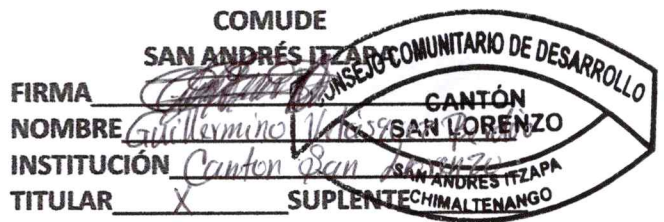 COMUDE
SAN ANDRÉS ITZAPA
FIRMA
NOMBRE Guillermino
INSTITUCIÓN Canton San Lorenzo
TITULAR X SUPLENTE
CONSEJO COMUNITARIO DE DESARROLLO
CANTÓN
SAN LORENZO
SAN ANDRES ITZAPA
CHIMALTENANGO